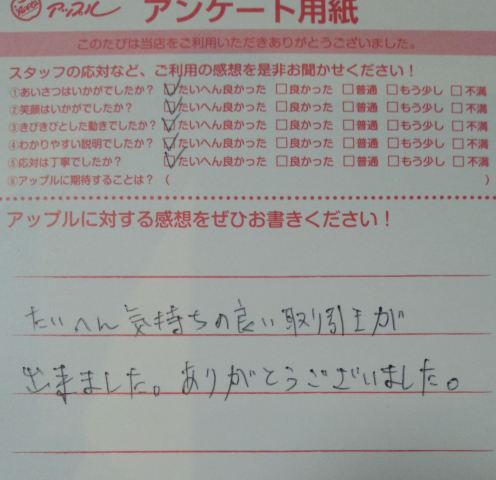 アップル アンケート用紙
このたびは当店をご利用いただきありがとうございました。
スタッフの応対など、ご利用の感想を是非お聞かせください！
①あいさつはいかがでしたか？ ☑たいへん良かった □良かった □普通 □もう少し □不満
②笑顔はいかがでしたか？ ☑たいへん良かった □良かった □普通 □もう少し □不満
③きびきびとした動きでしたか？ ☑たいへん良かった □良かった □普通 □もう少し □不満
④わかりやすい説明でしたか？ ☑たいへん良かった □良かった □普通 □もう少し □不満
⑤応対は丁寧でしたか？ ☑たいへん良かった □良かった □普通 □もう少し □不満
⑥アップルに期待することは？（
アップルに対する感想をぜひお書きください！
たいへん気持ちの良い取り引きが
出来ました。ありがとうございました。